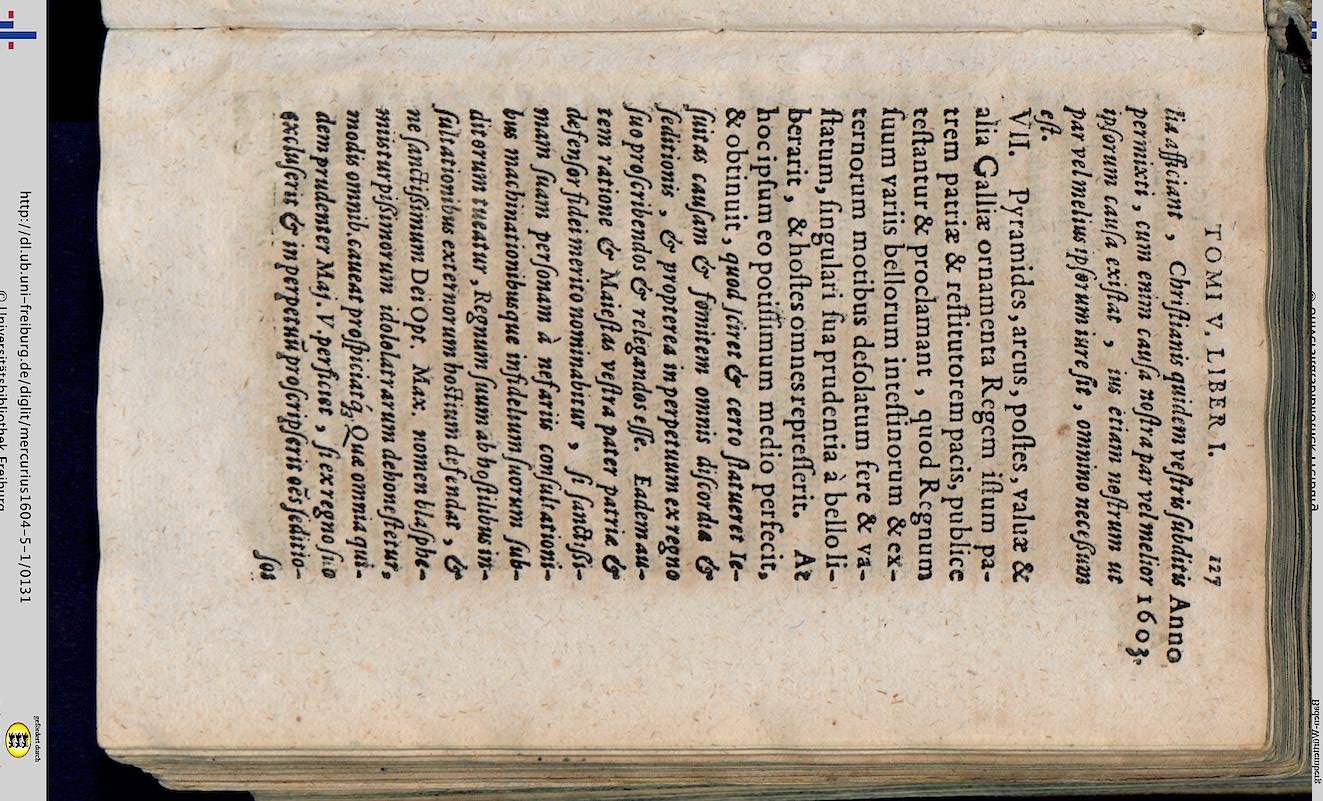 TOMI V. LIBER I. 127
ſtia afficiant, Chriſtianis quidem veſtris ſubditis Anno
permixti, cum enim cauſa noſtra par vel melior 1603.
ipſorum cauſa exiſtat, ius etiam noſtrum ut
par vel melius ipſorum iure ſit, omnino neceſsum
eſt.
VII. Pyramides, arcus, poſtes, valuæ &
alia Galliæ ornamenta Regem iſtum pa-
trem patriæ & reſtitutorem pacis, publice
teſtantur & proclamant, quod Regnum
ſuum variis bellorum inteſtinorum & ex-
ternorum motibus deſolatum fere & va-
ſtatum, ſingulari ſua prudentia à bello li-
berarit, & hoſtes omnes repreſſerit. At
hoc ipſum eo potiſſimum medio perfecit,
& obtinuit, quod ſciret & certo ſtatueret Ie-
ſuitas cauſam & fomitem omnis diſcordiæ &
ſeditionis, & propterea in perpetuum ex regno
ſuo proſcribendos & relegandos eſſe. Eadem au-
tem ratione & Maieſtas veſtra pater patriæ &
defenſor fidei merito nominabitur, ſi ſanctiſſi-
mam ſuam perſonam à nefariis conſultationi-
bus machinationibusque infidelium ſuorum ſub-
ditorum tueatur, Regnum ſuum ab hoſtilibus in-
ſultationibus externorum hoſtium defendat, &
ne ſanctiſsimum Dei Opt. Max. nomen blaſphe-
miis turpiſsimorum idololatrarum dehoneſtetur,
modis omnib. caveat proſpiciatq́ꝫ. Quæ omnia qui-
dem prudenter Maj. V. perficiet, ſi ex regno ſuo
excluſerit & in perpetuũ proſcripſerit oẽs ſeditio-
ſos
http://dl.ub.uni-freiburg.de/diglit/mercurius1604-5-1/0131
© Universitätsbibliothek Freiburg
gefördert durch